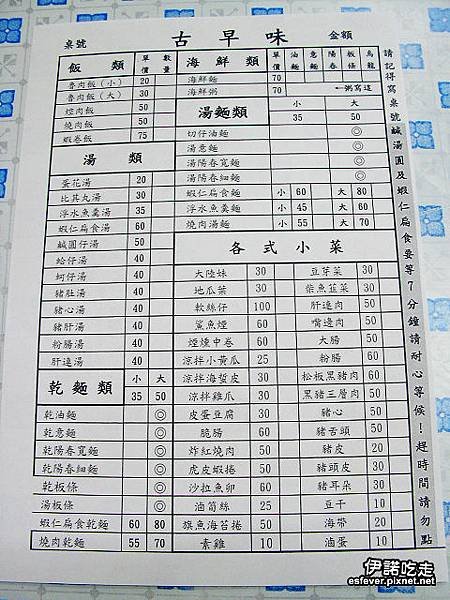 桌號 古早味 金額
飯類 單價 數量
魯肉飯(小) 20
魯肉飯(大) 30
焢肉飯 50
燒肉飯 50
蝦卷飯 75
湯類
蛋花湯 20
比其丸湯 30
浮水魚羹湯 35
蝦仁扁食湯 60
鹹圓仔湯 50
蛤仔湯 40
蚵仔湯 40
豬肚湯 40
豬心湯 40
豬肝湯 40
粉腸湯 40
肝連湯 40
乾麵類 小 35 大 50
乾油麵 ◎
乾意麵 ◎
乾陽春寬麵 ◎
乾陽春細麵 ◎
乾板條 ◎
湯板條 ◎
蝦仁扁食乾麵 60 80
燒肉乾麵 55 70
海鮮類 單價 油麵 意麵 陽春 板條 烏龍
海鮮麵 70
海鮮粥 70 ←粥寫這
湯麵類 小 35 大 50
切仔油麵 ◎
湯意麵 ◎
湯陽春寬麵 ◎
湯陽春細麵 ◎
蝦仁扁食麵 小 60 大 80
浮水魚羹麵 小 45 大 60
燒肉湯麵 小 55 大 70
各式小菜
大陸妹 30 豆芽菜 30
地瓜葉 30 柴魚韮菜 30
軟絲仔 100 肝連肉 50
鯊魚煙 60 嘴邊肉 50
煙燻中卷 60 大腸 50
涼拌小黃瓜 25 粉腸 60
涼拌海蜇皮 30 松板黑豬肉 60
涼拌雞爪 30 黑豬三層肉 50
皮蛋豆腐 30 豬心 50
脆腸 60 豬舌頭 50
炸紅燒肉 50 豬皮 20
虎皮蝦捲 50 豬頭皮 30
沙拉魚卵 60 豬耳朵 30
滷筍絲 25 豆干 10
旗魚海苔捲 50 海帶 20
素雞 10 滷蛋 10
請記得寫桌號鹹湯圓及蝦仁扁食要等7分鐘請耐心等候!趕時間請勿點
伊諾吃走
esfever.pixnet.net